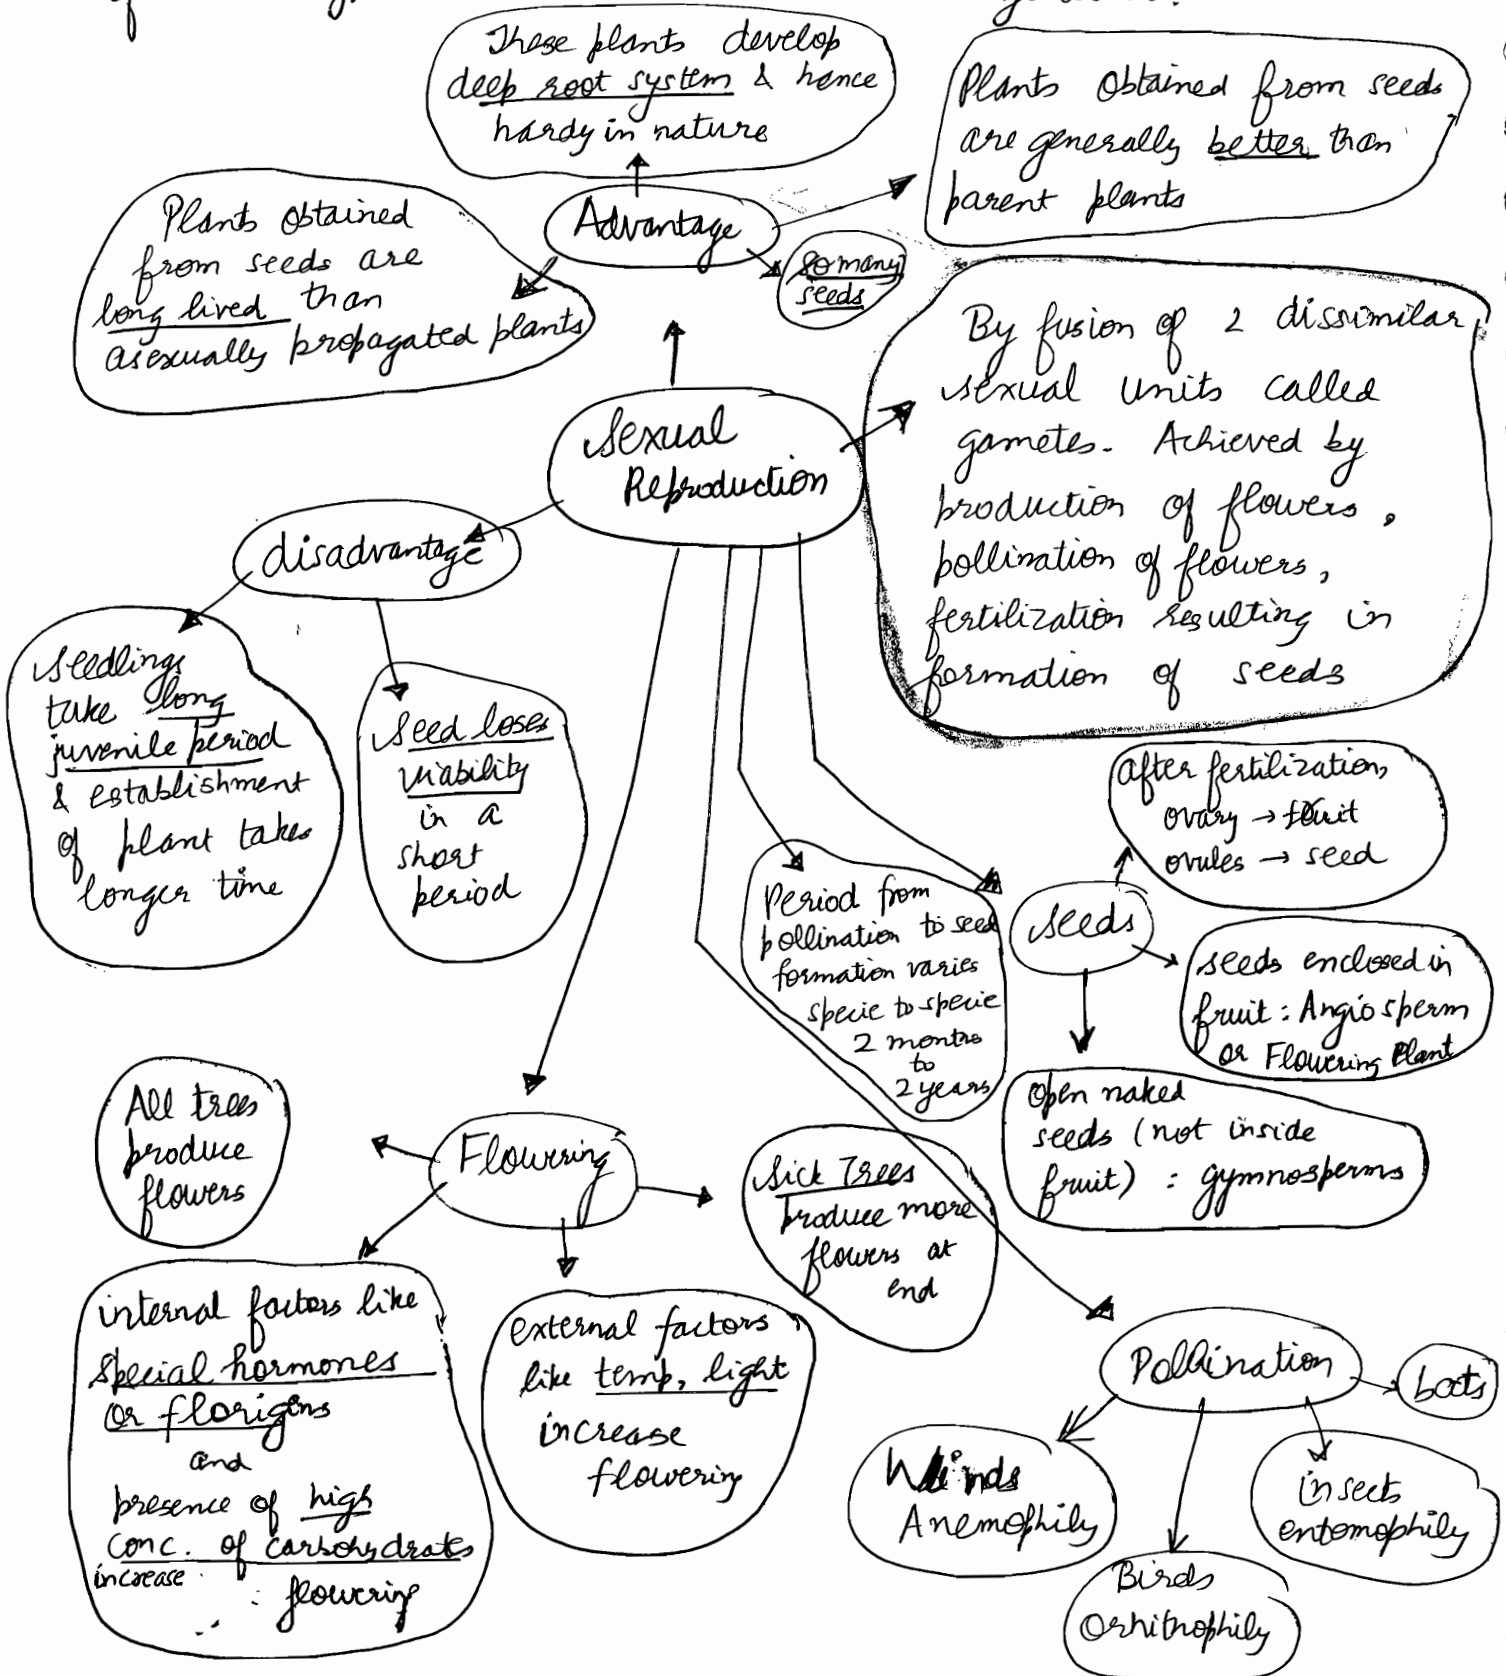 These plants develop
deep root system & hence
hardy in nature
Plants obtained from seeds
are generally better than
parent plants
Advantage
so many
seeds
Plants obtained
from seeds are
long lived than
asexually propagated plants
By fusion of 2 dissimilar
sexual units called
gametes. Achieved by
production of flowers,
pollination of flowers,
fertilization resulting in
formation of seeds
Sexual
Reproduction
disadvantage
seedlings
take long
juvenile period
& establishment
of plant takes
longer time
Seed loses
viability
in a
short
period
after fertilization,
ovary → fruit
ovules → seed
Period from
pollination to seed
formation varies
specie to specie
2 months
to
2 years
seeds
seeds enclosed in
fruit : Angiosperm
or Flowering Plant
open naked
seeds (not inside
fruit) : gymnosperms
All trees
produce
flowers
Flowering
Sick Trees
produce more
flowers at
end
internal factors like
special hormones
or florigens
and
presence of high
conc. of carbohydrates
increase
flowering
external factors
like temp, light
increase
flowering
Pollination
bats
Winds
Anemophily
insects
entomophily
Birds
Ornithophily